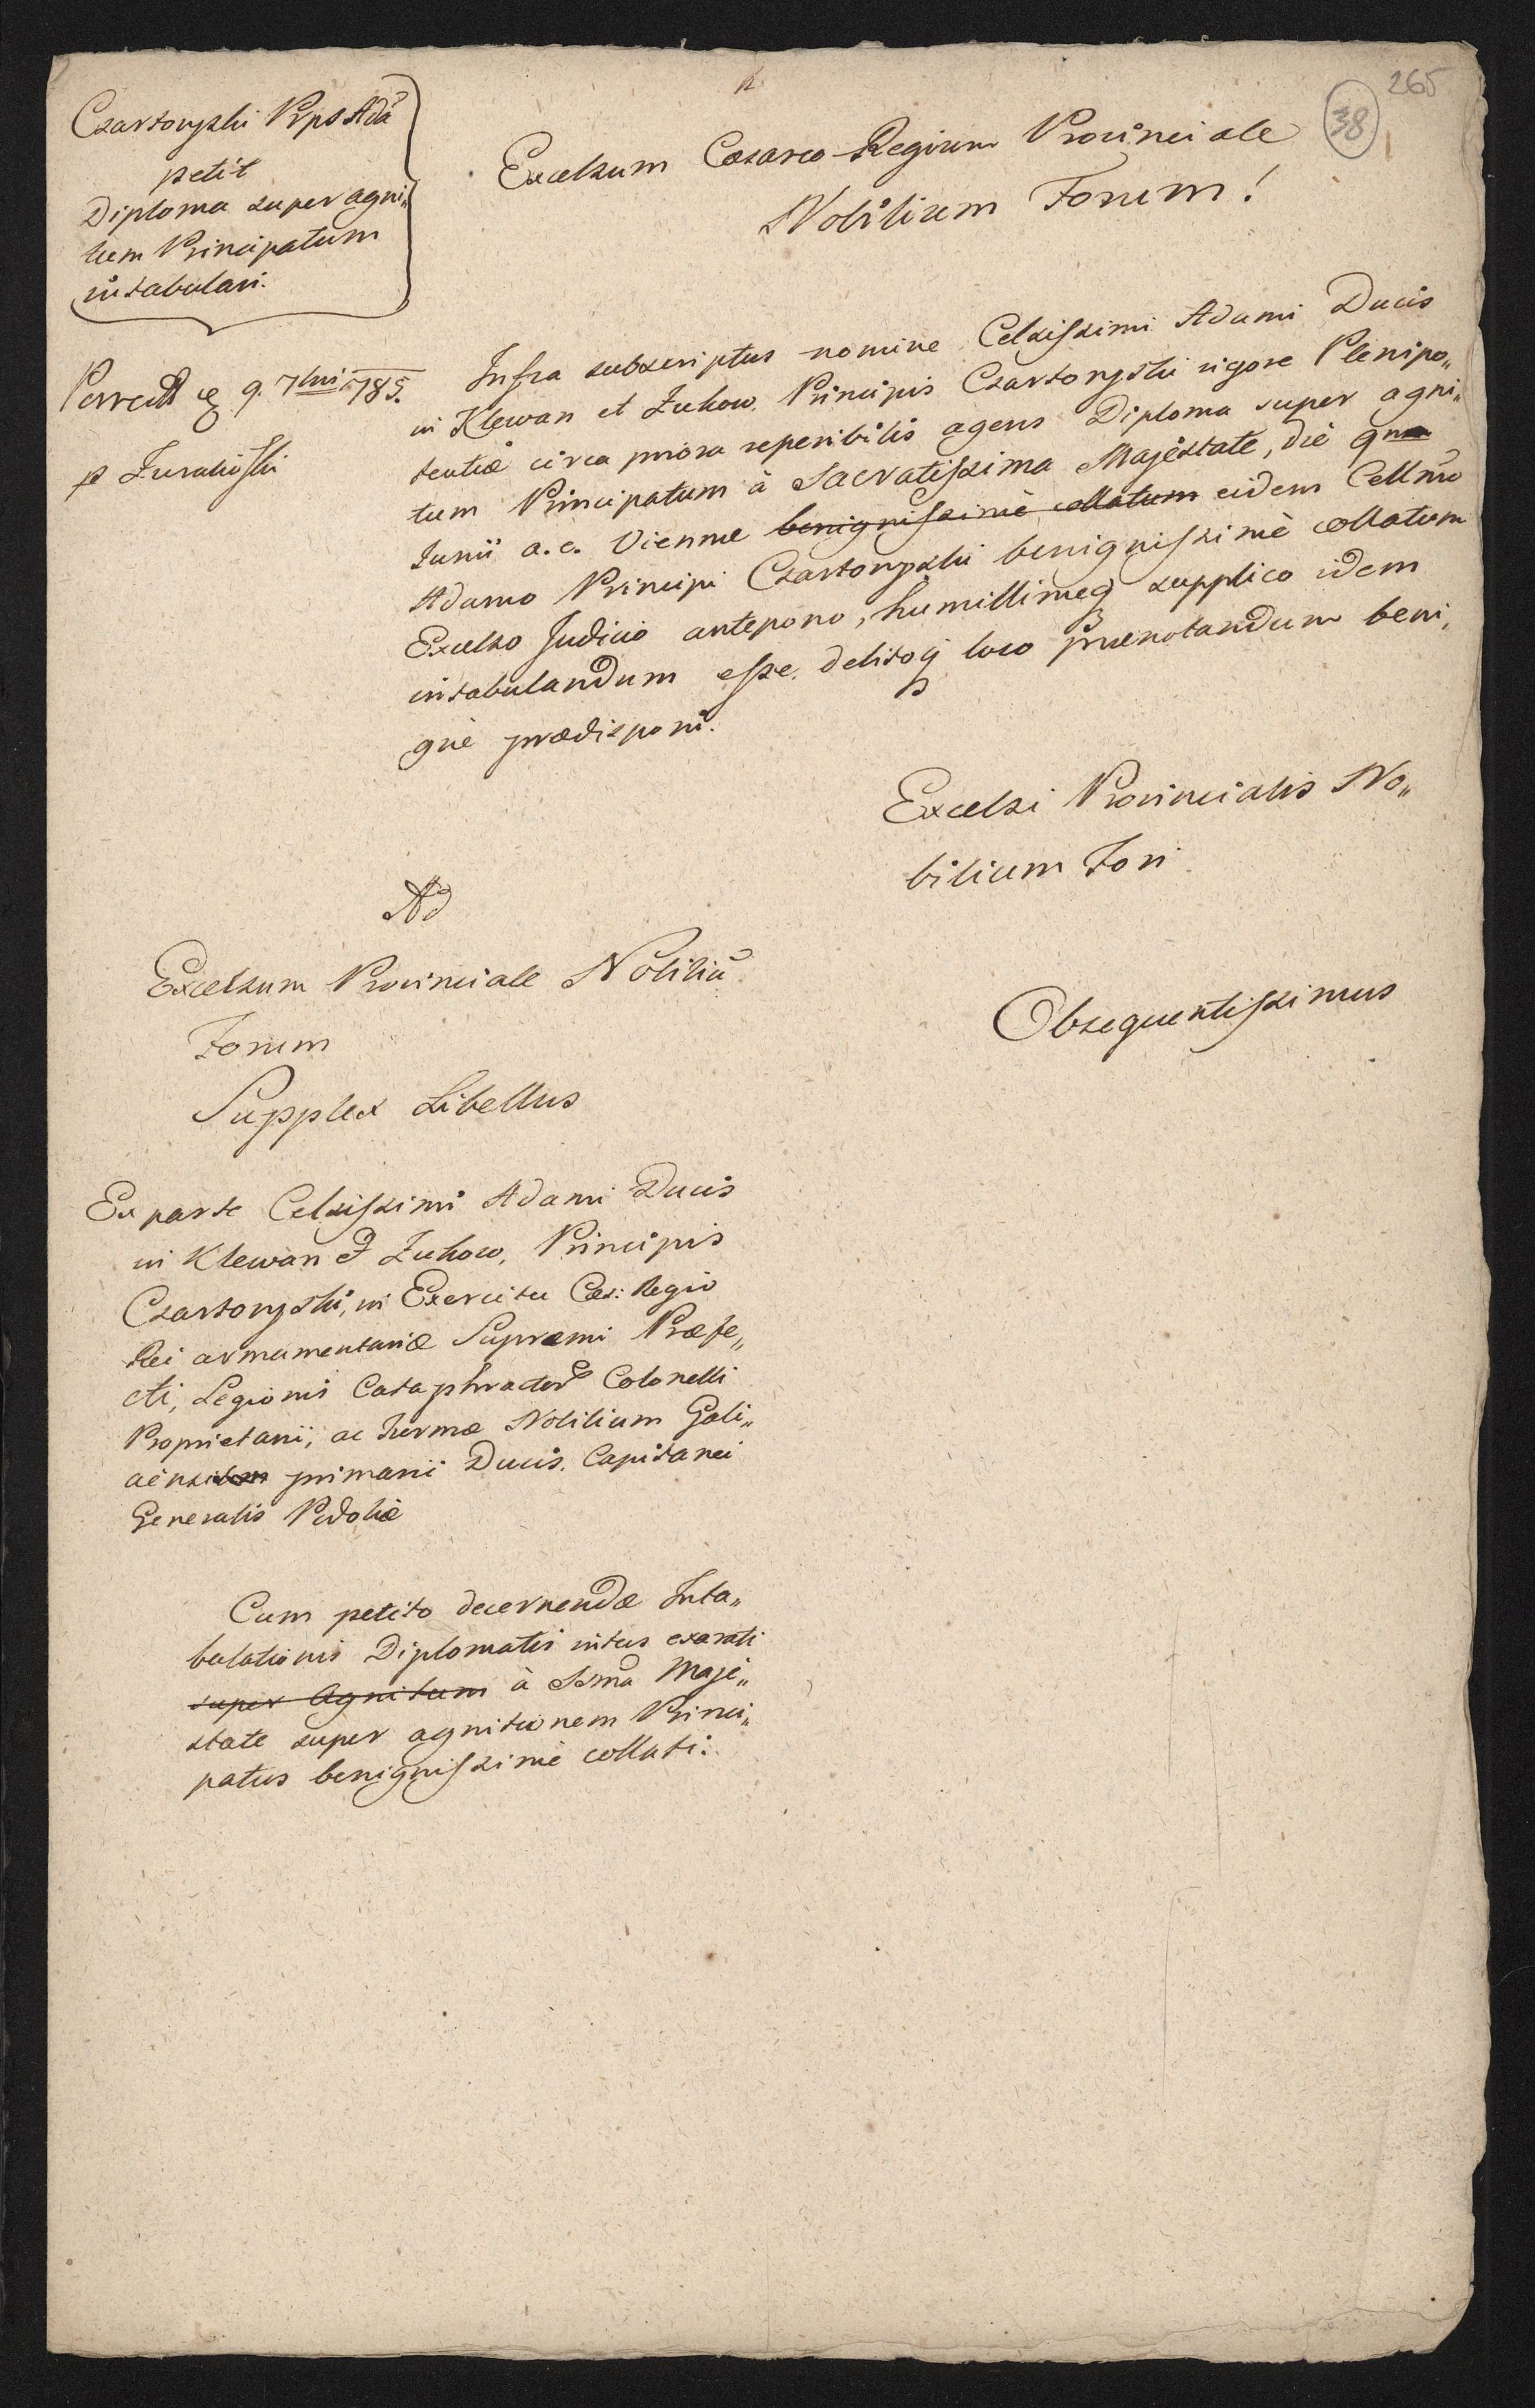 265
38
Czartoryski Pps Adā
petit
Diploma super agni„
tum Principatum
intabulari.
Excelsum Cæsareo-Regium Provinciale
Nobilium Forum!
9. 7bris 785.
p Zuralioski
Infra subscriptus nomine Celsissimi Adami Ducis
in Klewan et Zukow. Principis Czartoryski vigore Plenipo„
tentiæ circa priora reperibilis agens Diploma super agni„
tum Principatum à Sacratissima Majestate, die 9na
Junii a. c. Viennæ benignissimè collatum eidem Cellmo
Adamo Principi Czartoryski benignissimè collatum
Excelso Judicio antepono, humillimeq supplico idem
intabulandum esse. debitoq loco prænotandum beni„
gnè prædisponi.
Excelsi Provincialis No„
bilium Fori
Obsequentissimus
Ad
Excelsum Provinciale Nobiliū
Forum
Supplex Libellus
Ex parte Celsissimi Adami Ducis
in Klewan & Zukow, Principis
Czartoryski, in Exercitu Cæs: Regio
Rei armamentariæ Supremi Præfe„
cti, Legionis Cataphractor Colonelli
Proprietarii, ac Turmæ Nobilium Gali„
primarii Ducis. Capitanei
Generalis Podoliæ
Cum petito decernendæ Inta„
bulationis Diplomatis intus exarati
super Agnitum à Ssmā Maje„
state super agnitionem Princi„
patus benignissimè collati.